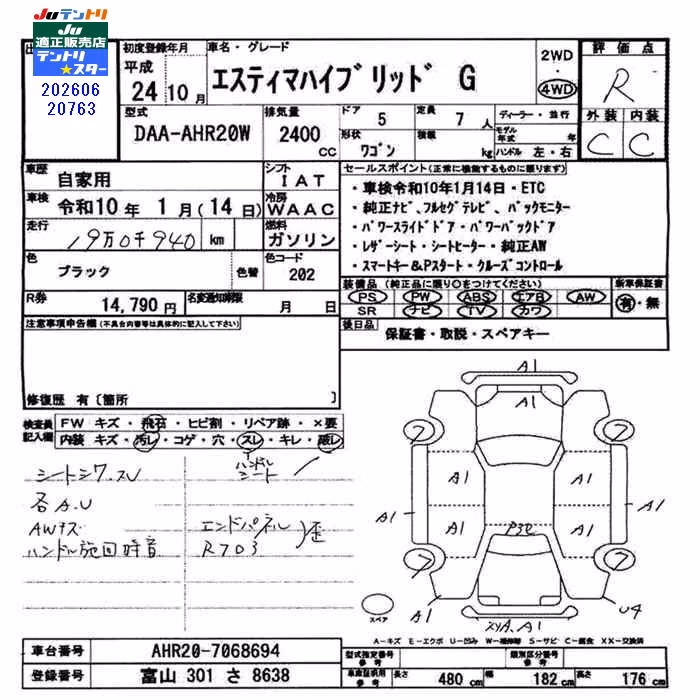 Juテントリ
Ju
適正販売店
テントリ
★スター
202606
20763
初度登録年月
平成
24 10 月
車名・グレード
エスティマハイブリッド G
2WD
4WD
評価点
R
型式
DAA-AHR20W
排気量
2400 cc
ドア 5
形状 ワゴン
定員 7 人
積載 kg
ディーラー・並行
モデル年式 年
ハンドル 左・右
外装 内装
C C
車歴 自家用
シフト IAT
車検 令和10年 1月(14日)
冷房 WAAC
走行 19万0千940 km
燃料 ガソリン
色 ブラック 色替
色コード 202
R券 14,790 円
名変通知期限 月 日
セールスポイント(正常に機能するものに限ります)
・車検令和10年1月14日・ETC
・純正ナビ、フルセグテレビ、バックモニター
・パワースライドドア・パワーバックドア
・レザーシート・シートヒーター・純正AW
・スマートキー&Pスタート・クルーズコントロール
装備品(純正品に限り○をつけてください)
PS PW ABS エアB AW
SR ナビ TV カワ
新車保証書
有・無
後日品 保証書・取説・スペアキー
注意事項申告欄(不具合内容等は具体的に記入して下さい)
修復歴 有〔箇所 〕
検査員記入欄
FW キズ・飛石・ヒビ割・リペア跡・×要
内装 キズ・汚レ・コゲ・穴・スレ・キレ・破レ
ハンドル
シート
シートシワ.スレ
各A.U
AWキズ
ハンドル施回時音
エンドパネル
R703
歪
A1
A1
A1 A1
A1 A1 A1 A1
A1 U4
スペア
A-キズ E-エクボ U-凹み W-補修跡 S-サビ C-腐食 XX-交換済
車台番号 AHR20-7068694
登録番号 富山 301 さ 8638
型式指定番号 参考
類別区分番号 参考
車庫証明用 参考
長さ 480 cm 幅 182 cm 高さ 176 cm